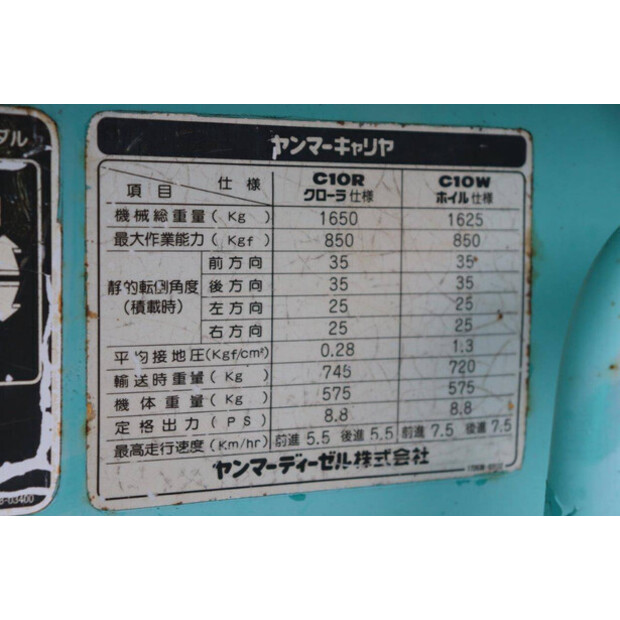 タル
ヤンマーキャリヤ
項目 仕様 C10R クローラ仕様 C10W ホイル仕様
機械総重量(Kg) 1650 1625
最大作業能力(Kgf) 850 850
静的転倒角度(積載時) 前方向 35 35
後方向 35 35
左方向 25 25
右方向 25 25
平均接地圧(Kgf/cm²) 0.28 1.3
輸送時重量(Kg) 745 720
機体重量(Kg) 575 575
定格出力(PS) 8.8 8.8
最高走行速度(Km/hr) 前進5.5 後進5.5 前進7.5 後進7.5
ヤンマーディーゼル株式会社
-03400